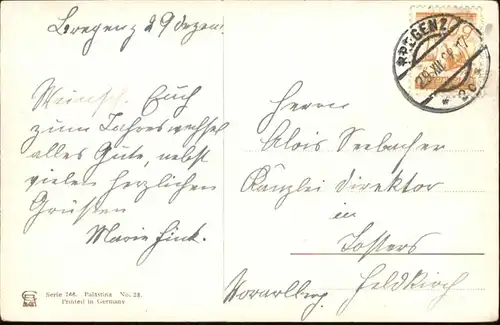 Bregenz 29 dezem.
Wünsch. Euch
zum Jahreswechsel
alles Gute, nebst
vielen herzlichen
Grüßen
Marie Fink.
Serie 766. Palästina No. 23.
Printed in Germany
BREGENZ
29.XII.28.17
* 2c *
Herrn
Alois Seebacher
Kanzlei direktor
in
Tosters
Feldkirch
Vorarlberg